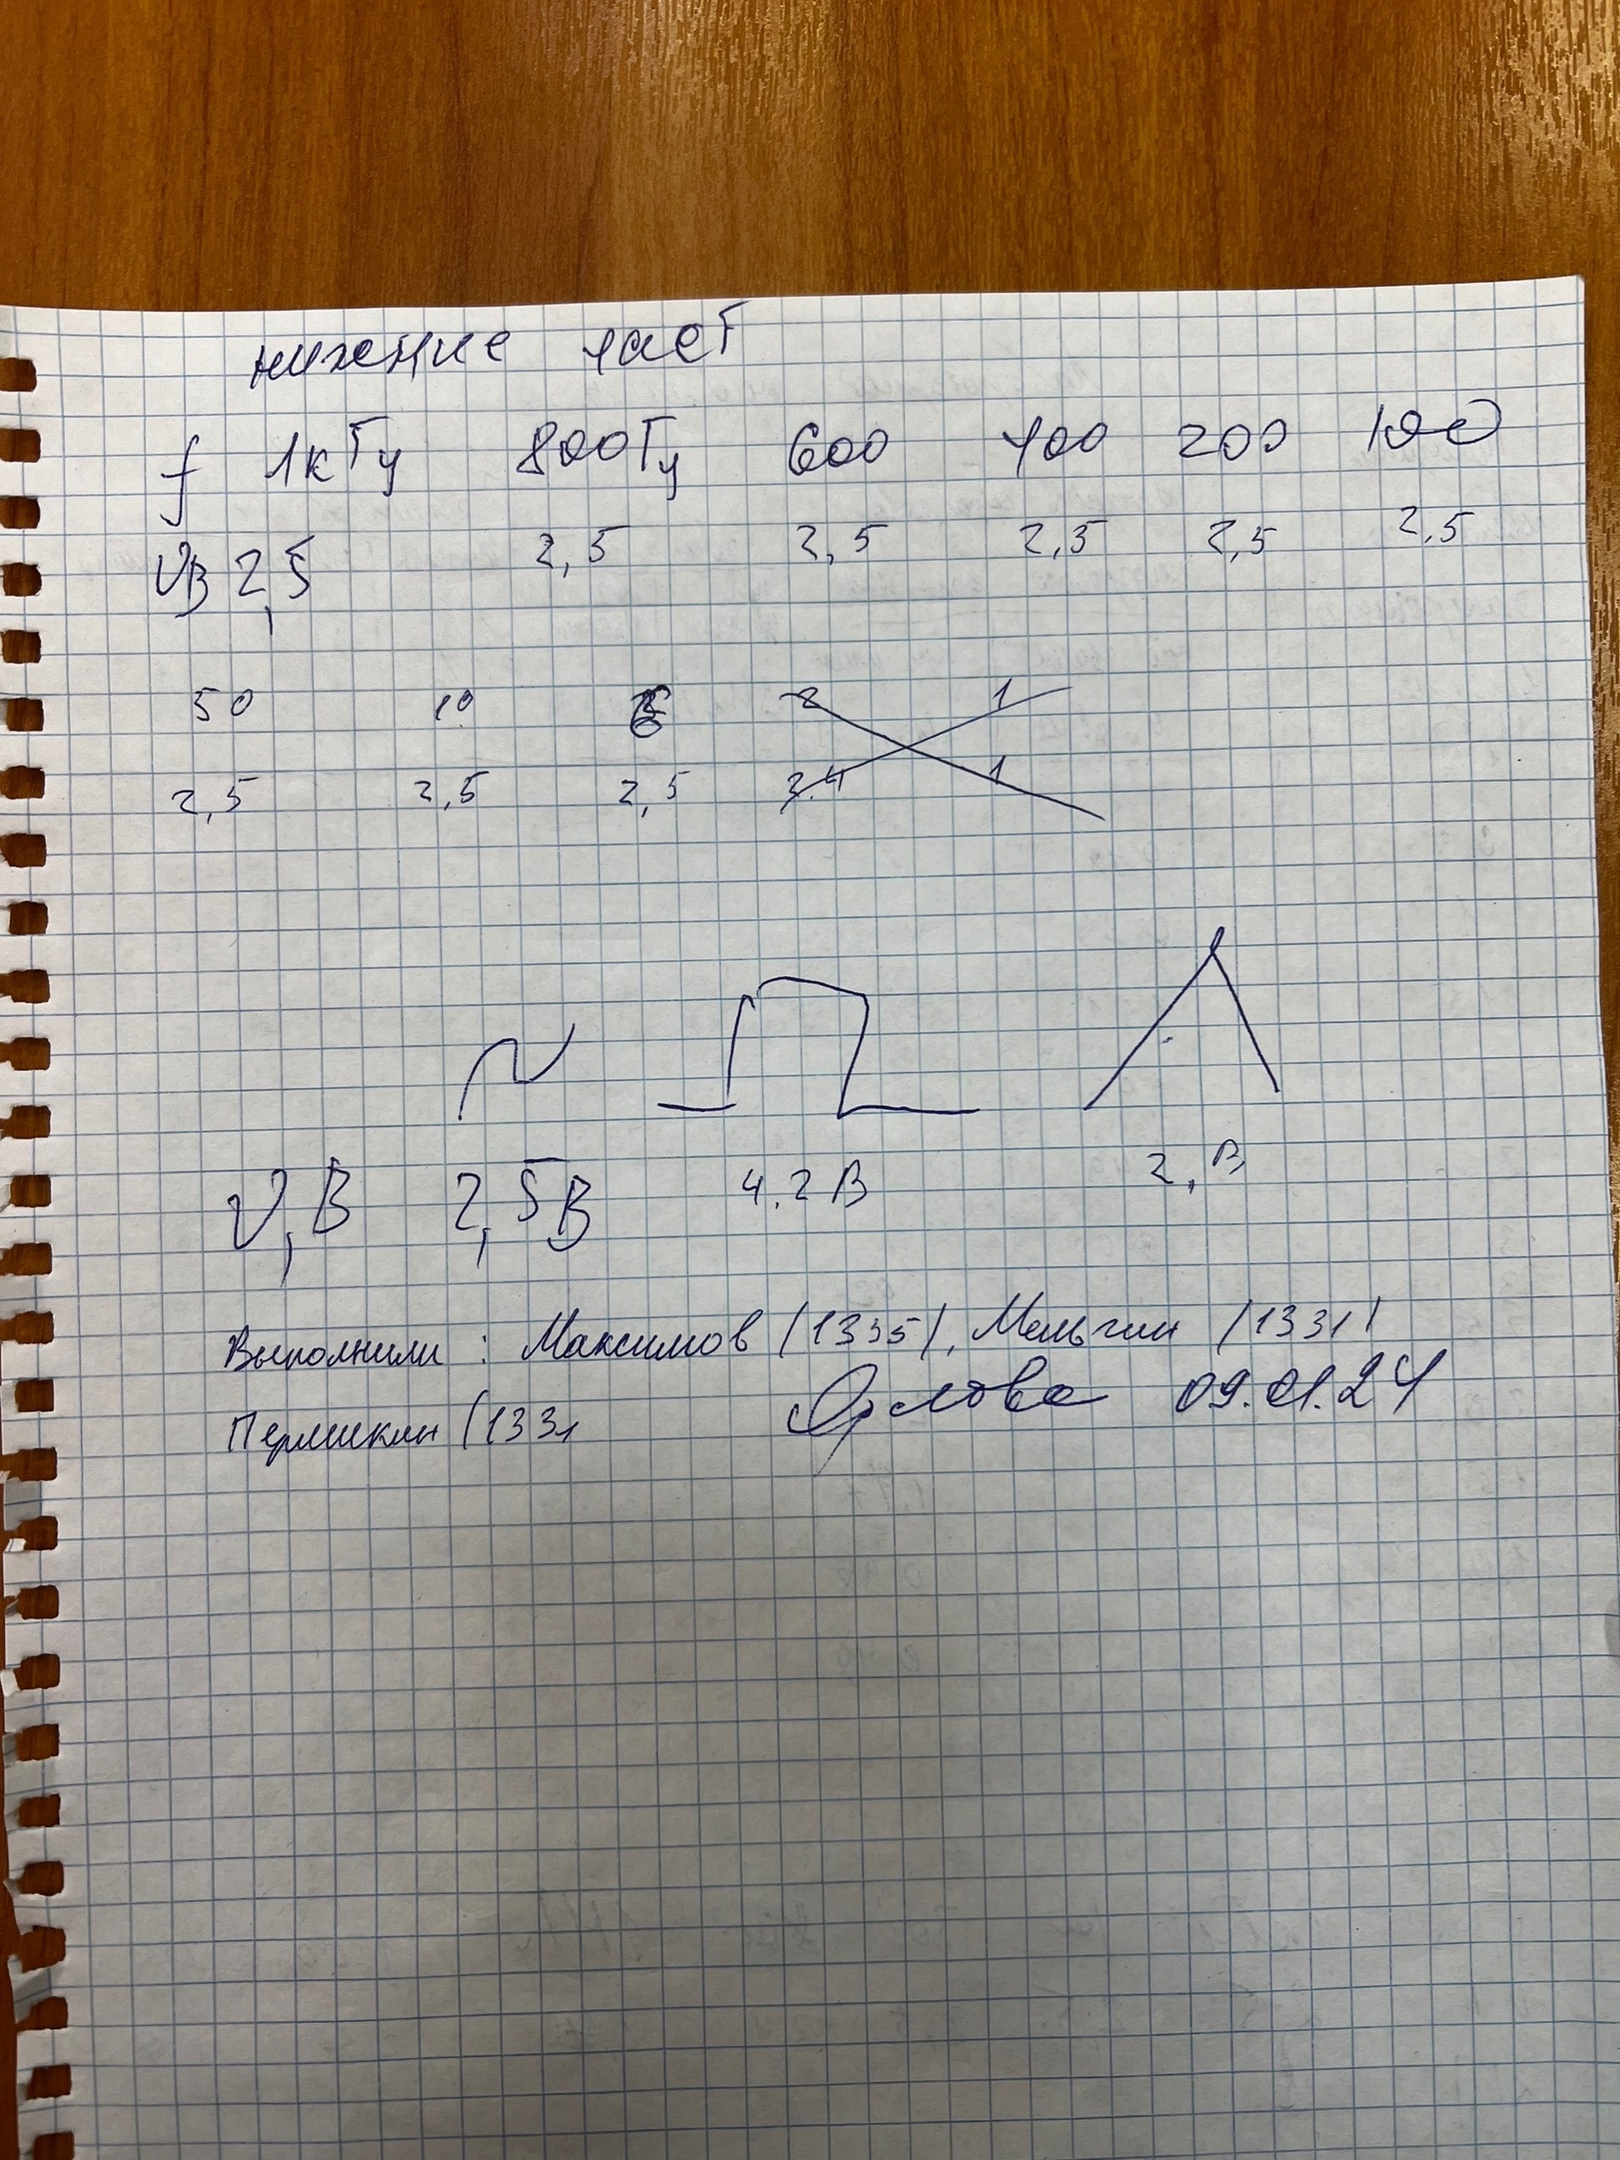 нижние част
f 1кГц 800Гц 600 400 200 100
UВ 2,5 2,5 2,5 2,5 2,5 2,5
50 10 2 1
2,5 2,5 2,5 2.4 1
U,В 2,5В 4.2В 2,В
Выполнили : Максимов (1335), Мельгин (1331)
Пермикин (1331
Орлова 09.01.24